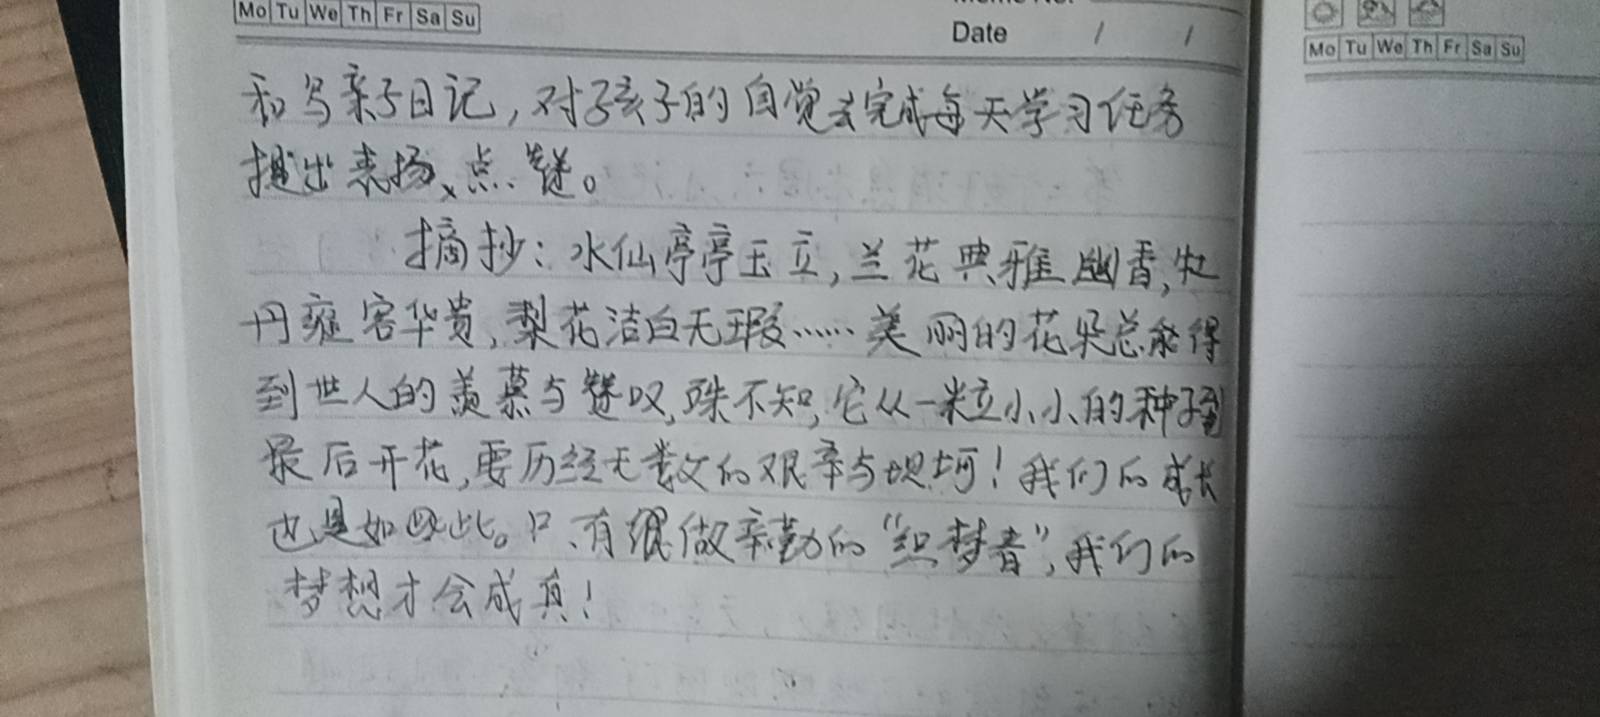 Mo Tu We Th Fr Sa Su
Date / /
Mo Tu We Th Fr Sa Su
和写亲子日记，对孩子的自觉去完成每天学习任务
提出表扬、点赞。
摘抄：水仙亭亭玉立，兰花典雅幽香，牡
丹雍容华贵，梨花洁白无瑕……美丽的花朵总能得
到世人的羡慕与赞叹，殊不知，它从一粒小小的种子到
最后开花，要历经无数的艰辛与坝坷！我们的成长
也是如此。只有做辛勤的“织梦者”，我们的
梦想才会成真！